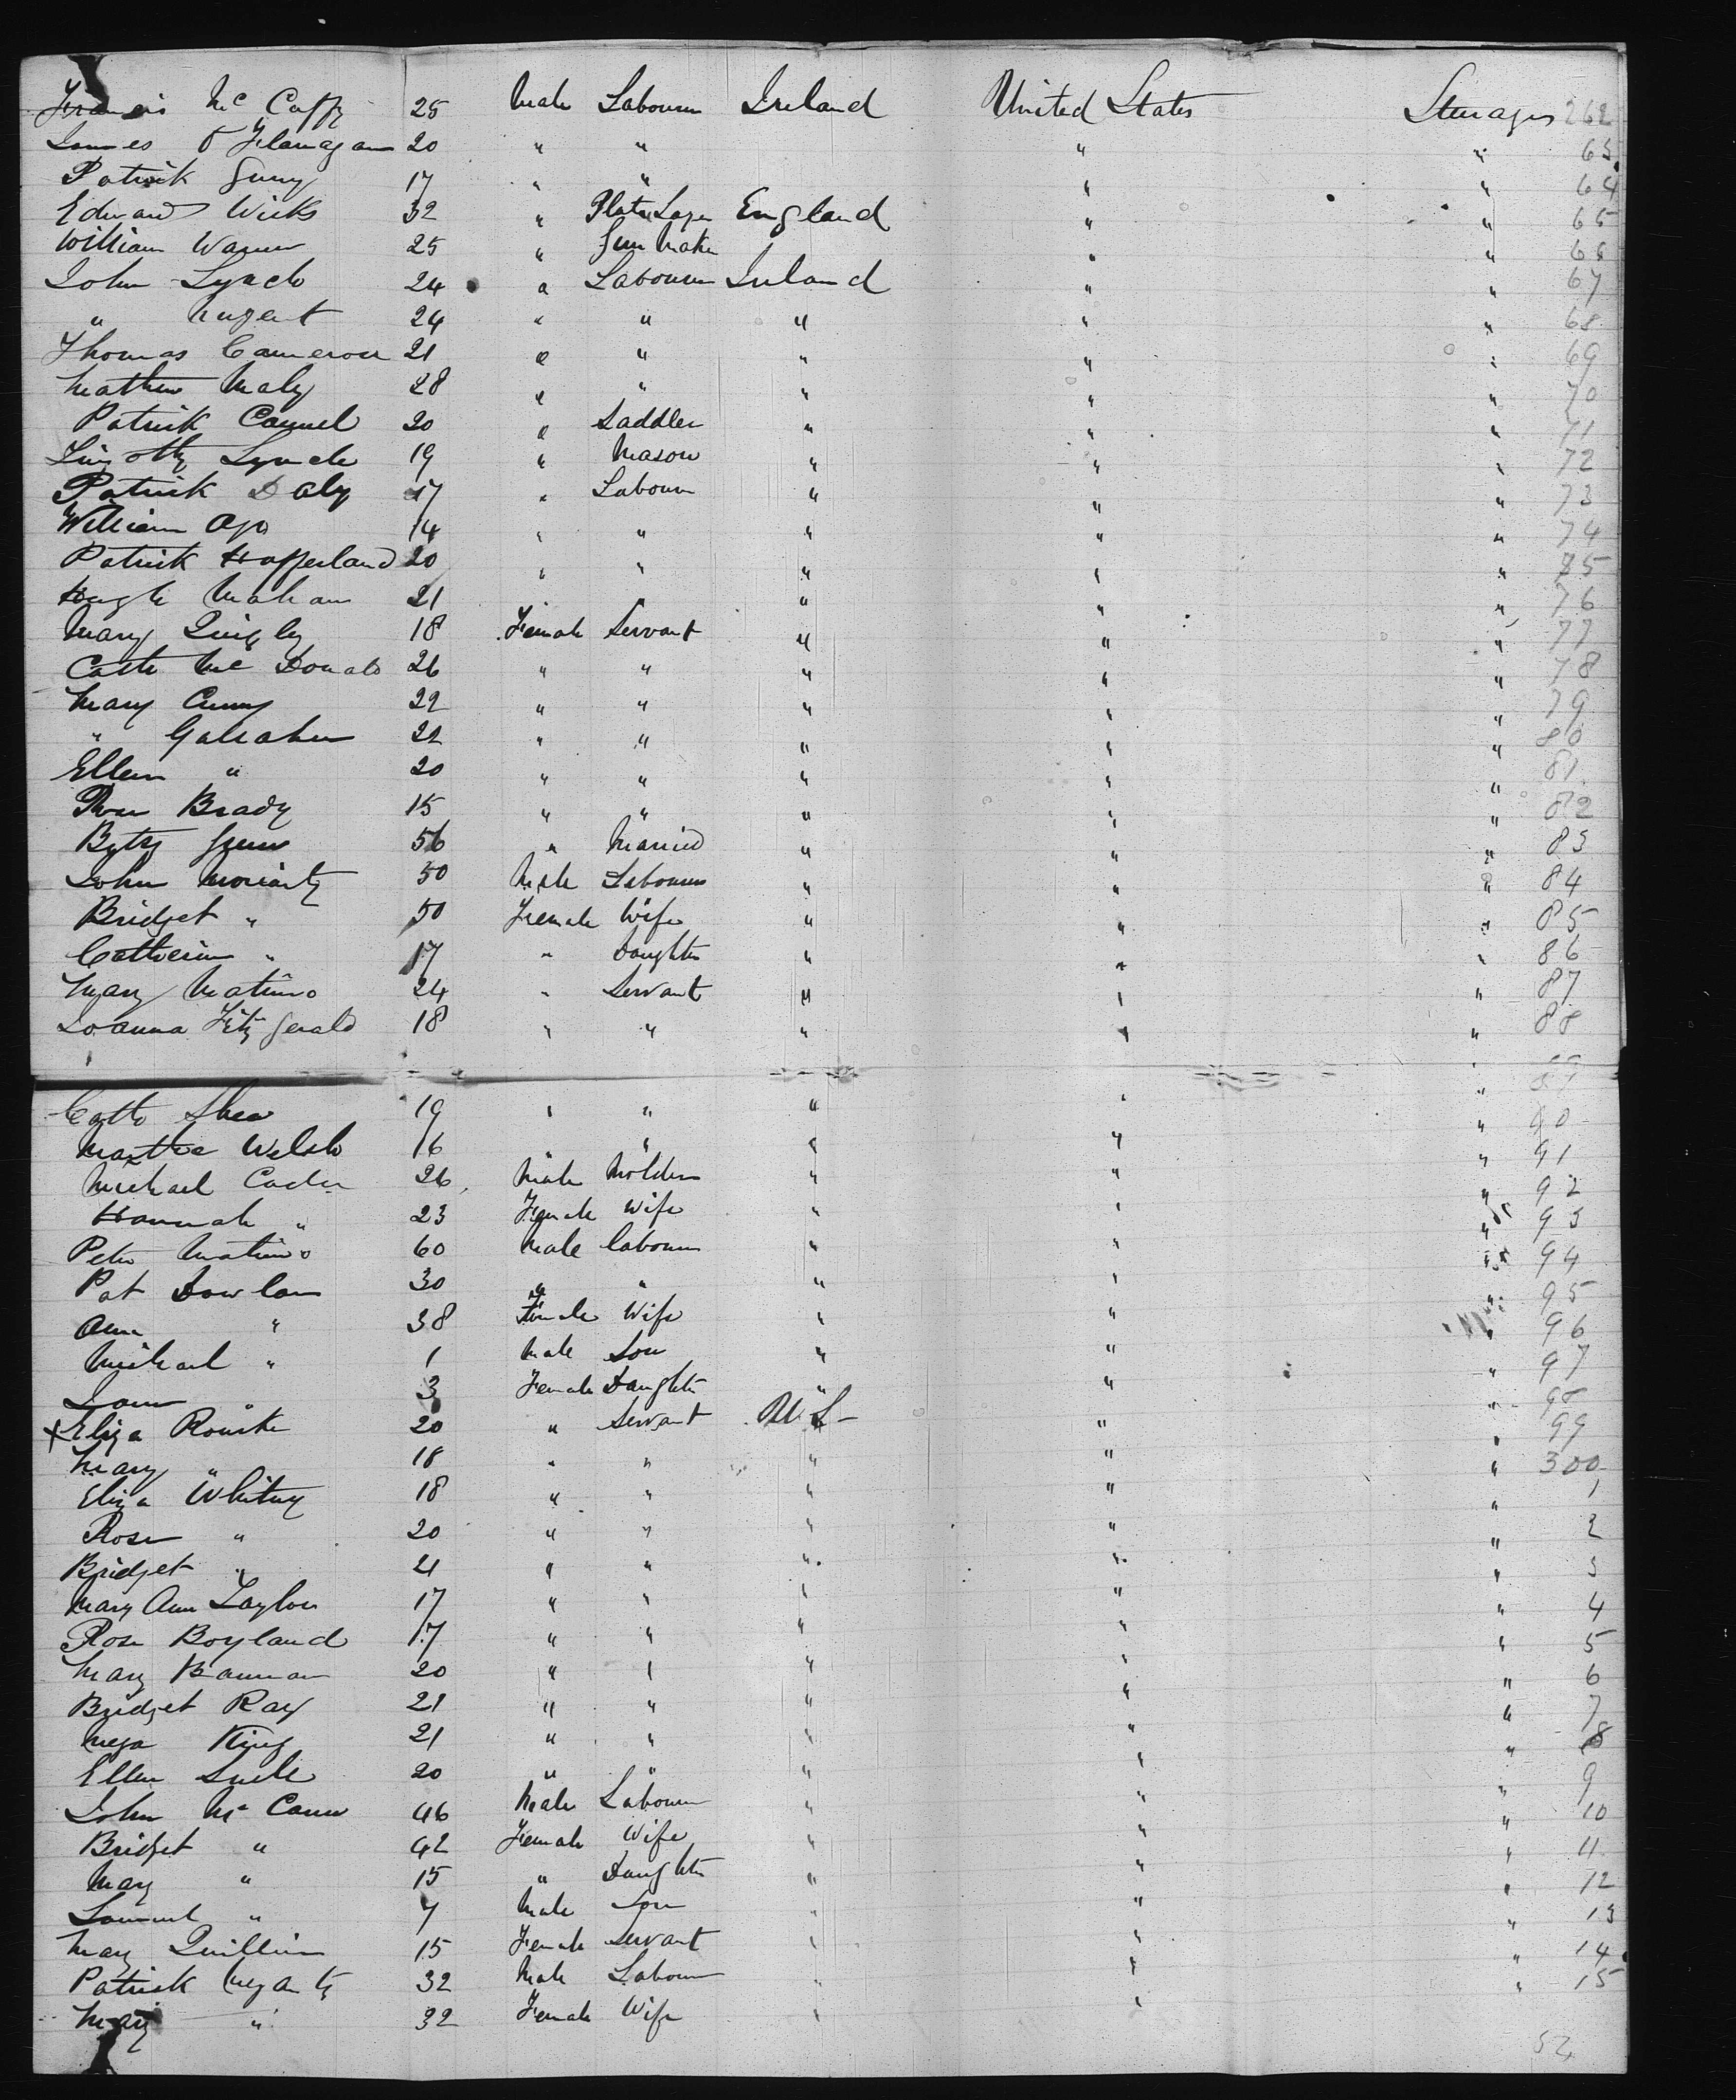 Francis Mc Caffy 25 Male Labourer Ireland United States Steerages 262
James O Flanagan 20 " " " " 63
Patrick Guny 17 " " " " 64
Edward Wicks 32 " Plate Layer England " " 65
William Warner 25 " Gun Maker " " 66
John Lynch 24 " Labourer Ireland " " 67
" Nugent 24 " " " " " 68
Thomas Cameron 21 " " " " " 69
Mathew Maly 28 " " " " " 70
Patrick Connel 20 " Saddler " " " 71
Timothy Lynch 19 " Mason " " " 72
Patrick Daly 17 " Labourer " " " 73
William 14 " " " " " 74
Patrick Hafferland 20 " " " " " 75
Hugh Mahan 21 " " " " " 76
Mary Quigly 18 Female Servant " " " 77
Cath Mc Donald 26 " " " " " 78
Mary Cunny 22 " " " " " 79
" Gallaher 22 " " " " " 80
Ellen " 20 " " " " " 81
Rose Brady 15 " " " " " 82
Betty Gunn 56 " Married " " " 83
John Moriarty 50 Male Labourer " " " 84
Bridget " 50 Female Wife " " " 85
Catherine " 17 " Daughter " " " 86
Mary Matimo 24 " Servant " " " 87
Joanna Fitzgerald 18 " " " " " 88
Cath Shea 19 " " " " " 89
Martha Welsh 16 " " " " " 90
Michael Cader 26 Male Molder " " " 91
Hannah " 23 Female Wife " " " 92
Peter Matimo 60 Male labourer " " " 93
Pat Dowlan 30 " " " " " 94
Ann " 38 Female Wife " " " 95
Michael " 1 Male Son " " " 96
" 3 Female Daughter " " " 97
x Eliza Rourke 20 " Servant U.S- " " 98
Mary " 18 " " " " " 99
Eliza Whitny 18 " " " " " 300
Rose " 20 " " " " " 1
Bridget " 21 " " " " " 2
Mary Ann Taylor 17 " " " " " 3
Rose Boyland 17 " " " " " 4
Mary Bannan 20 " " " " " 5
Bridget Ray 21 " " " " " 6
King 21 " " " " " 7
Ellen 20 " " " " " 8
John Mc Cann 46 Male Labourer " " " 9
Bridget " 42 Female Wife " " " 10
Mary " 15 " Daughter " " " 11
Samuel " 7 Male Son " " " 12
Mary Quillin 15 Female Servant " " " 13
Patrick Megarty 32 Male Labourer " " " 14
Mary " 32 Female Wife " " " 15
52